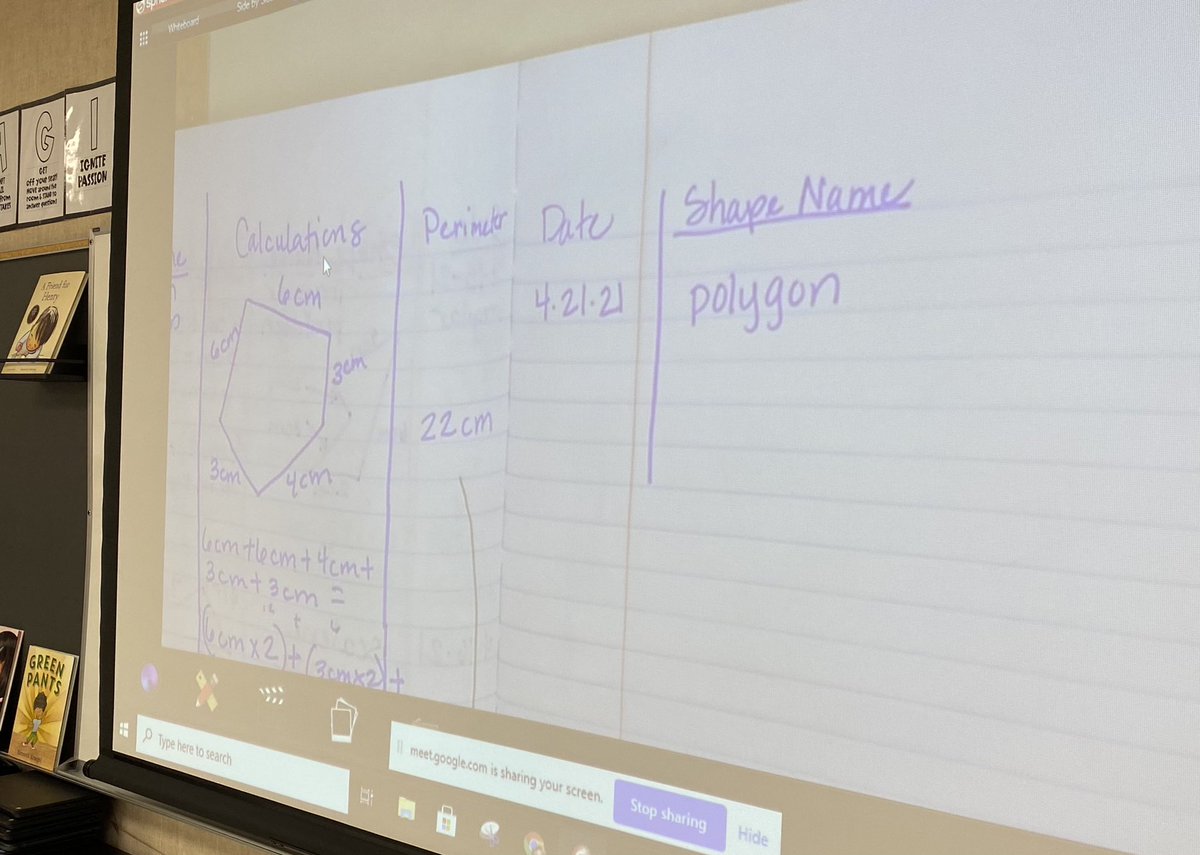 Whiteboard
Side by
G
GET
off your seat!
I
IGNITE
PASSION
A Friend for
Henry
GREEN
PANTS
Calculations
Perimeter
Date
Shape Name
6cm
6cm
3cm
3cm
4cm
22cm
4.21.21
polygon
6cm+6cm+4cm+
3cm+3cm =
(6cm x2)+(3cmx2)+
Type here to search
meet.google.com is sharing your screen.
Stop sharing
Hide